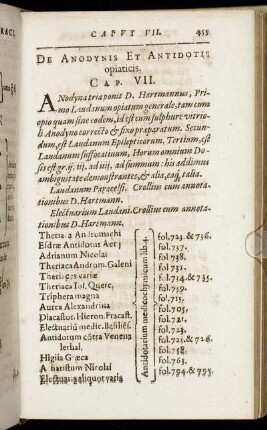 CAPVT VII. 455
DE ANODYNIS ET ANTIDOTIS
opiaticis.
CAP. VII.
ANodyna tria ponit D. Hartmannus, Primo
Laudanum opiatum generale, tam cum
opio quam sine eodem, id est cum sulphure vitrioli
Anodyno correcto & fixo præparatum. Secundum,
est Laudanum Epilepticorum, Tertium, est
Laudanum suffocatiuum, Horum omnium Dosis
est gr.ij, iij, ad iiij, ad summum: his addimus
ambiguitate demonstrantes, & alia, eaq́; talia.
Laudanum Paracelsi. Crollius cum annotationibus
D. Hartmann.
Electuarium Laudani. Crollius cum annotationibus
D. Hartmann.
Theriaca Andromachi fol.723. & 736.
Esdræ Antidotus Aetij fol.737.
Adrianum Nicolai fol.738.
Theriaca Androm. Galeni fol.732.
Theriacæ variæ fol.714. & 735.
Theriaca Ios. Querc. fol.759.
Triphera magna fol.715.
Aurea Alexandrina fol.705.
Diacastor. Hieron. Fracast. fol.721.
Electuariū medic. Basiliēs. fol.723.
Antidotum cōtra Venena fol.725. & 726.
lethal. fol.758.
Higiia Græca fol.763.
Electuaria aliquot varia fol.794. & 795.
Antidotarium medicochymicum lib.4.